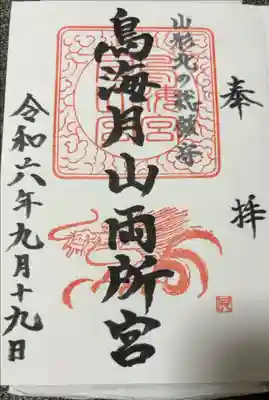 奉拝
山形北の総鎮守
鳥海月山両所宮
令和六年九月十九日